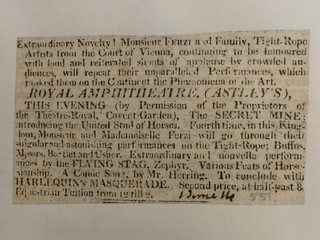 Extraordinary Novelty! Monsieur FERZI and Family, Tight-Rope
Artists from the Court of Vienna, continuing to be honoured
with loud and reiterated shouts of applause by crowded au-
diences, will repeat their unparalleled Performances, which
ranked them on the Continent the Phenomena of the Art.
ROYAL AMPHITHEATRE, (ASTLEY'S),
THIS EVENING (by Permission of the Proprietors of
the Theatre-Royal, Covent-Garden), The SECRET MINE;
introducing the United Stud of Horses. Fourth time, in this King-
dom, Monsieur and Mademoiselle Ferzi will go through their
singular and astonishing performances on the Tight-Rope; Buffos,
Messrs. and Usher. Extraordinary and nouvelle perform-
ances by the FLYING STAG, Zephyr. Various Feats of Horse-
manship. A Comic Song, by Mr. Herring. To conclude with
HARLEQUIN'S MASQUERADE. Second price, at half-past 8.
Equestrian Tuition from 12 till 2.